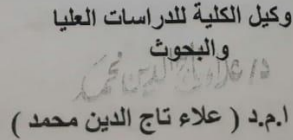 وكيل الكلية للدراسات العليا
والبحوث
د/ علاء تاج الدين محمد
ا.م.د ( علاء تاج الدين محمد )